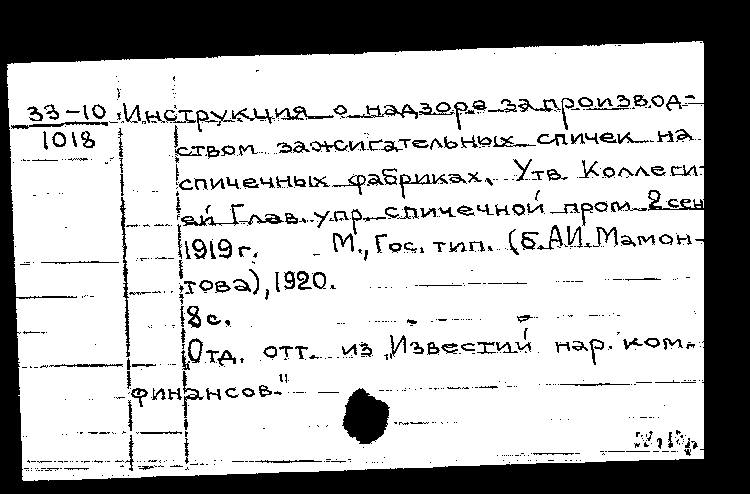 33-10 Инструкция о надзоре за производ-
1018
ством зажигательных спичек на
спичечных фабриках. Утв. Коллеги-
ей Глав. упр. спичечной пром. 2 сен
1919 г. М., Гос. тип. (б. АИ. Мамон-
това), 1920.
8 с.
Отд. отт. из „Известий нар. ком.
финансов."